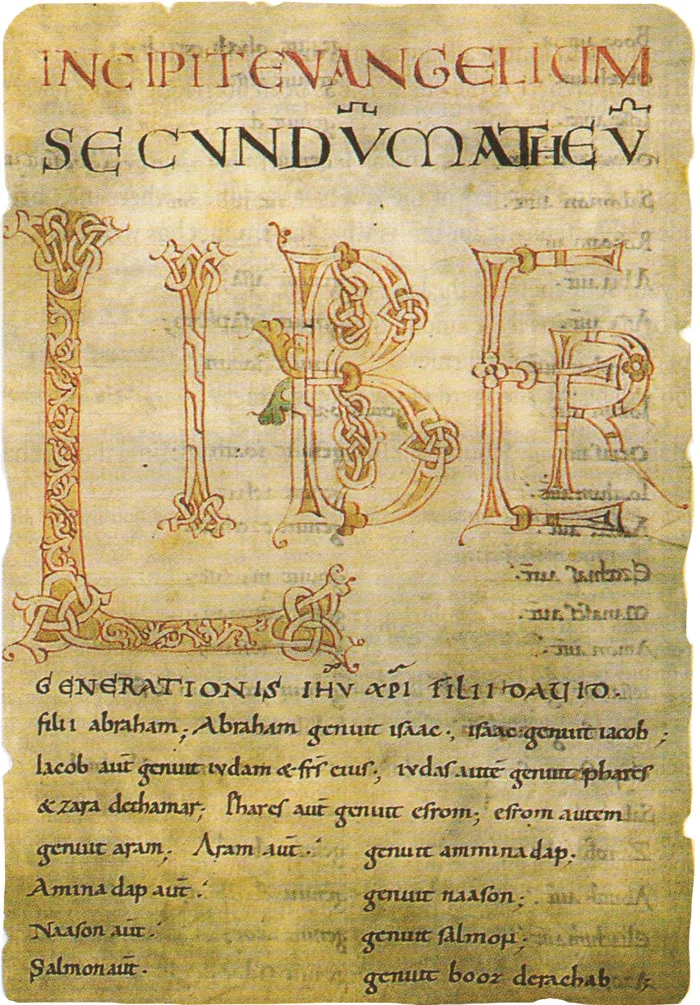 INCIPIT EVANGELIUM
SECVNDVMATHEV
LIBER
GENERATIONIS IHV XPI FILII DAVID.
filii abraham; Abraham genuit isaac; isaac genuit iacob;
Iacob aut genuit iudam & frs eius; iudas autē genuit phares
& zara dethamar; Phares aut genuit esrom; esrom autem
genuit aram; Aram aut. genuit ammina dap;
Amina dap aut. genuit naason;
Naason aut. genuit salmon;
Salmon aut. genuit booz derachab